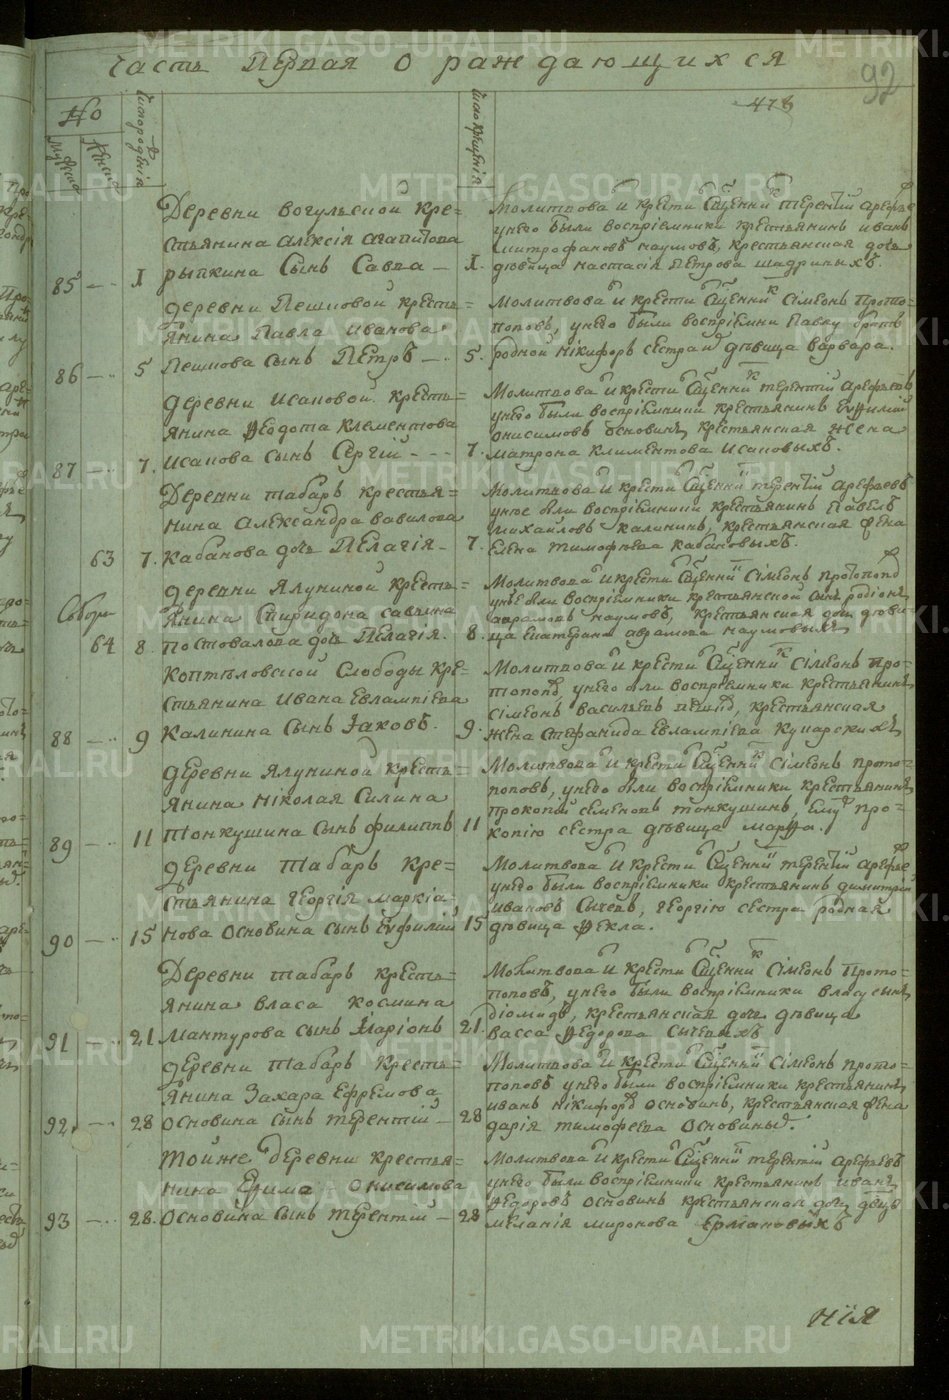 Часть Первая О раждающихся
92
478
№
Число рожденія
Число крещенія
Деревни вогульской кре=
стьянина алексія агапитова
85 — 1 рыпкина Сынъ Савва —
1. Молитвова и крести Сщенникъ терентій арефьев
у него были воспріемники крестьянинъ иванъ
митрофановъ наумовъ, крестьянская дочь
девица настасія Петрова шадриныхъ.
деревни Пешковой кресть=
янина Павла иванова
86 — 5 Пешкова сынъ Петръ —
5. Молитвова и крести Сщенникъ Сімеонъ Прото=
поповъ, у него были воспріемни Павлу братъ
родной Никифоръ сестра и девица варвара.
деревни исаковой кресть=
янина Ѳеодота Клементова
87 — 7. исакова сынъ Сергій —
7. Молитвова и крести Сщенникъ терентій арефьевъ
у него были воспріемники крестьянинъ Евфилій
онисимовъ основинъ, крестьянская жена
матрона климентова исаковыхъ.
Деревни табаръ крестья=
нина Александра вавилова
63 7. Кабанова дочь Пелагія —
7. Молитвова и крести Сщенникъ терентій арефьевъ
у нее были воспріемники крестьянинъ Павелъ
михайловъ калининъ, крестьянская жена
Елена тимофѣева кабановыхъ.
деревни Ялуниной кресть=
янина Спиридона саввина
64 8. постовалова дочь Пелагія.
8. Молитвова и крести Сщенникъ Сімеонъ протопоп
у нее были воспріемники крестьянской сынъ родіонъ
аврамовъ наумовъ, крестьянская дочь деви=
ца Екатерина аврамова наумовыхъ
Коптяловской Слободы кре=
стьянина ивана Евлампіева
88 — 9 Калинина Сынъ Іаковъ.
9. Молитвова и крести Сщенникъ Сімеонъ про=
топопов, у него были воспріемники крестьянинъ
Сімеонъ васильевъ, крестьянская
жена Стефанида Евлампіева Кунарскихъ
деревни Ялуниной кресть=
янина Николая Силина
89 — 11 тонкушина сынъ филиппъ
11 Молитвова и крести Сщенникъ Сімеонъ прото=
поповъ, у него были воспріемники крестьянинъ
прокопій семеновъ тонкушинъ, ему про=
копію сестра девица марѳа.
деревни табаръ кре=
стьянина георгія маркіа
90 — 15 нова основина сынъ Евфилій
15 Молитвова и крести Сщенникъ терентій арефьев
у него были воспріемники крестьянинъ димитрій
ивановъ Сычевъ, георгію сестра родная
девица Ѳекла.
Деревни табаръ кресть=
янина власа космина
91 — 21. мантурова сынъ Іларіонъ
21. Молитвова и крести Сщенникъ Сімеонъ Прото=
поповъ, у него были воспріемники власу сынъ
діомидъ, крестьянская дочь девица
васса Ѳедорова Сычевыхъ
деревни табаръ кресть=
янина Захара Ефремова
92. — 28 основина сынъ терентій —
28 Молитвова и крести Сщенникъ Сімеонъ прото=
поповъ у него были воспріемники крестьянинъ
иванъ никифоров основинъ, крестьянская жена
дарія тимофеева основиныхъ.
тойже деревни крестья=
нина Ефима онисимова
93 — 28. основина сынъ терентій —
28 Молитвова и крести Сщенникъ терентій арефьевъ
у него были воспріемники крестьянинъ иванъ
Ѳедоровъ основинъ крестьянская дочь девица
меланія миронова Ермаковыхъ
нія
METRIKI.GASO-URAL.RU